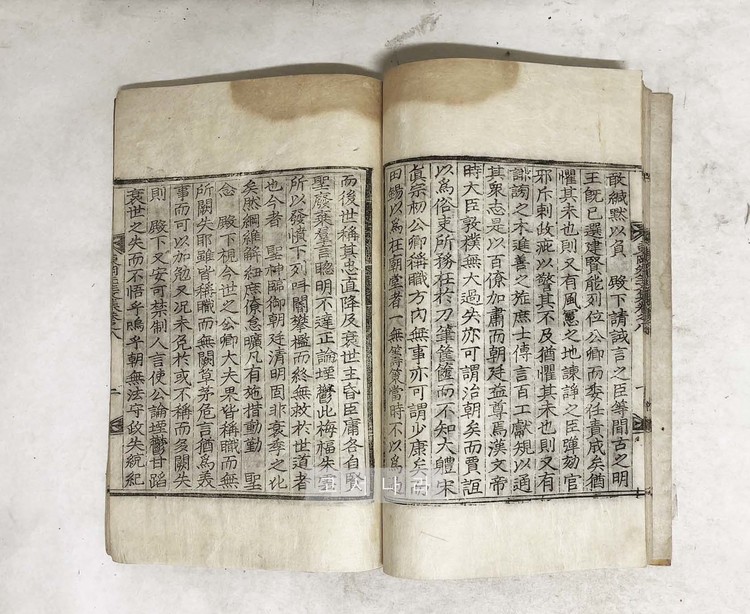 敢緘黙以負 殿下請誠言之臣等聞古之明
王旣已選建賢能列位公卿而委任責成矣猶
懼其未也則又有風憲之地諫諍之臣彈劾官
邪斥刺政疵以警其不及猶懼其未也則又有
誹謗之木進善之旌庶士傳言百工獻規以通
其衆志是以百僚加肅而朝廷益尊焉漢文帝
時大臣敦樸無大過失亦可謂治朝矣而賈誼
以爲俗吏所務在於刀筆筐篋而不知大軆宋
眞宗初公卿稱職方内無事亦可謂少康矣而
田錫以爲在朝堂者一無籌策當時不以爲
而後世稱其忠直降及衰世主昏臣庸各自賢
聖廢棄羣言聰明不達正論堙鬱此梅福朱
所以發憤下列叫閽攀檻而終無救於世道者
也今者 聖神臨御朝廷清明固非衰季之化
矣然綱維解紐庶僚怠曠凡有施措動勤 聖
念 殿下視今世之公卿大夫果皆稱職而無
所闕失耶雖皆稱職而無闕草茅危言猶爲義
事而可以加勉又况未免於或不稱而多闕失
則 殿下又安可禁制人言使公論堙鬱甘蹈
衰世之失而不悟乎嗚乎朝無法守政失統紀
卷之八
二
卷八
一
나라